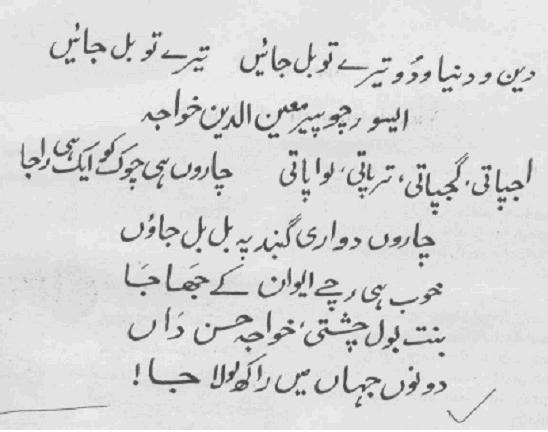 دین و دنیا و دُو تیرے تو بل جائیں تیرے تو بل جائیں
ایسو رچو پیر معین الدین خواجہ
اجپاتی، گجپاتی، ترپاتی، نواپاتی چاروں ہی چوک کو ایک ہی راجا
چاروں دواری گنبد پہ بل بل جاؤں
خوب ہی رچے ایوان کے چھاجا
بنت بول چشتی، خواجہ حسن داں
دونوں جہاں میں راکھ لولا جا!